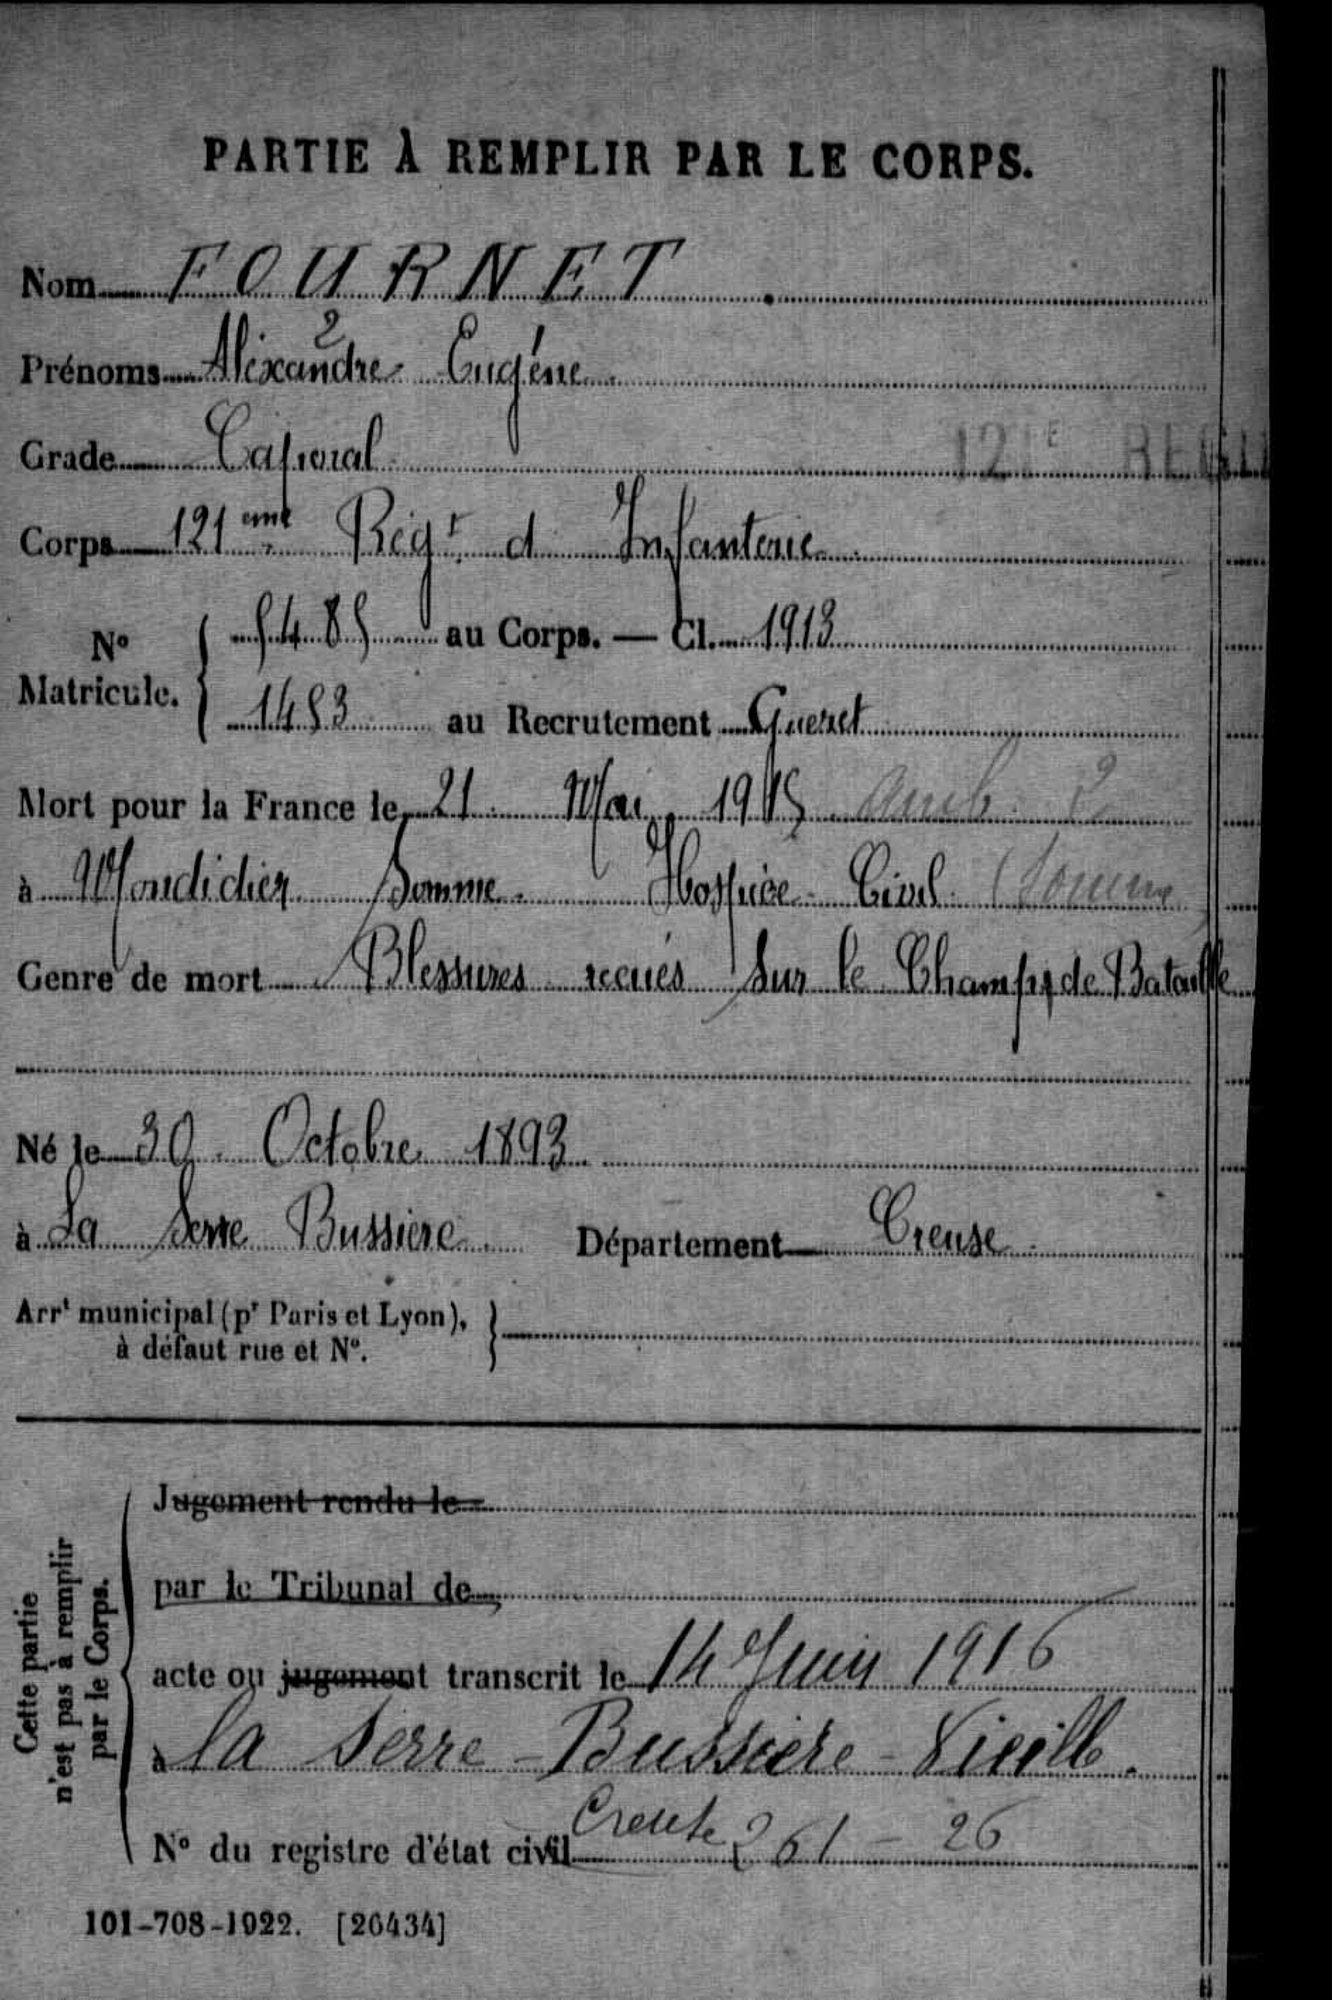 PARTIE À REMPLIR PAR LE CORPS.
Nom FOURNET
2
Prénoms Alexandre Eugéne
Grade Caporal
121E REGI
Corps 121 eme Régt d Infanterie
No Matricule. { 5485 au Corps. — Cl. 1913
1453 au Recrutement Gueret
Mort pour la France le 21 Mai 1915 Amb. 2
à Mondidier Somme Hospice Civil (Somme
Genre de mort Blessures recues sur le Champs de Bataille
Né le 30 Octobre 1893
à La Serre Bussiere Département Creuse
Arrt municipal (pr Paris et Lyon), à défaut rue et No. }
Cette partie n'est pas à remplir par le Corps.
Jugement rendu le
par le Tribunal de
acte ou jugement transcrit le 14 Juin 1916
à la Serre-Bussière-Vieille.
Creuse
No du registre d'état civil 261 - 26
101-708-1922. [26434]